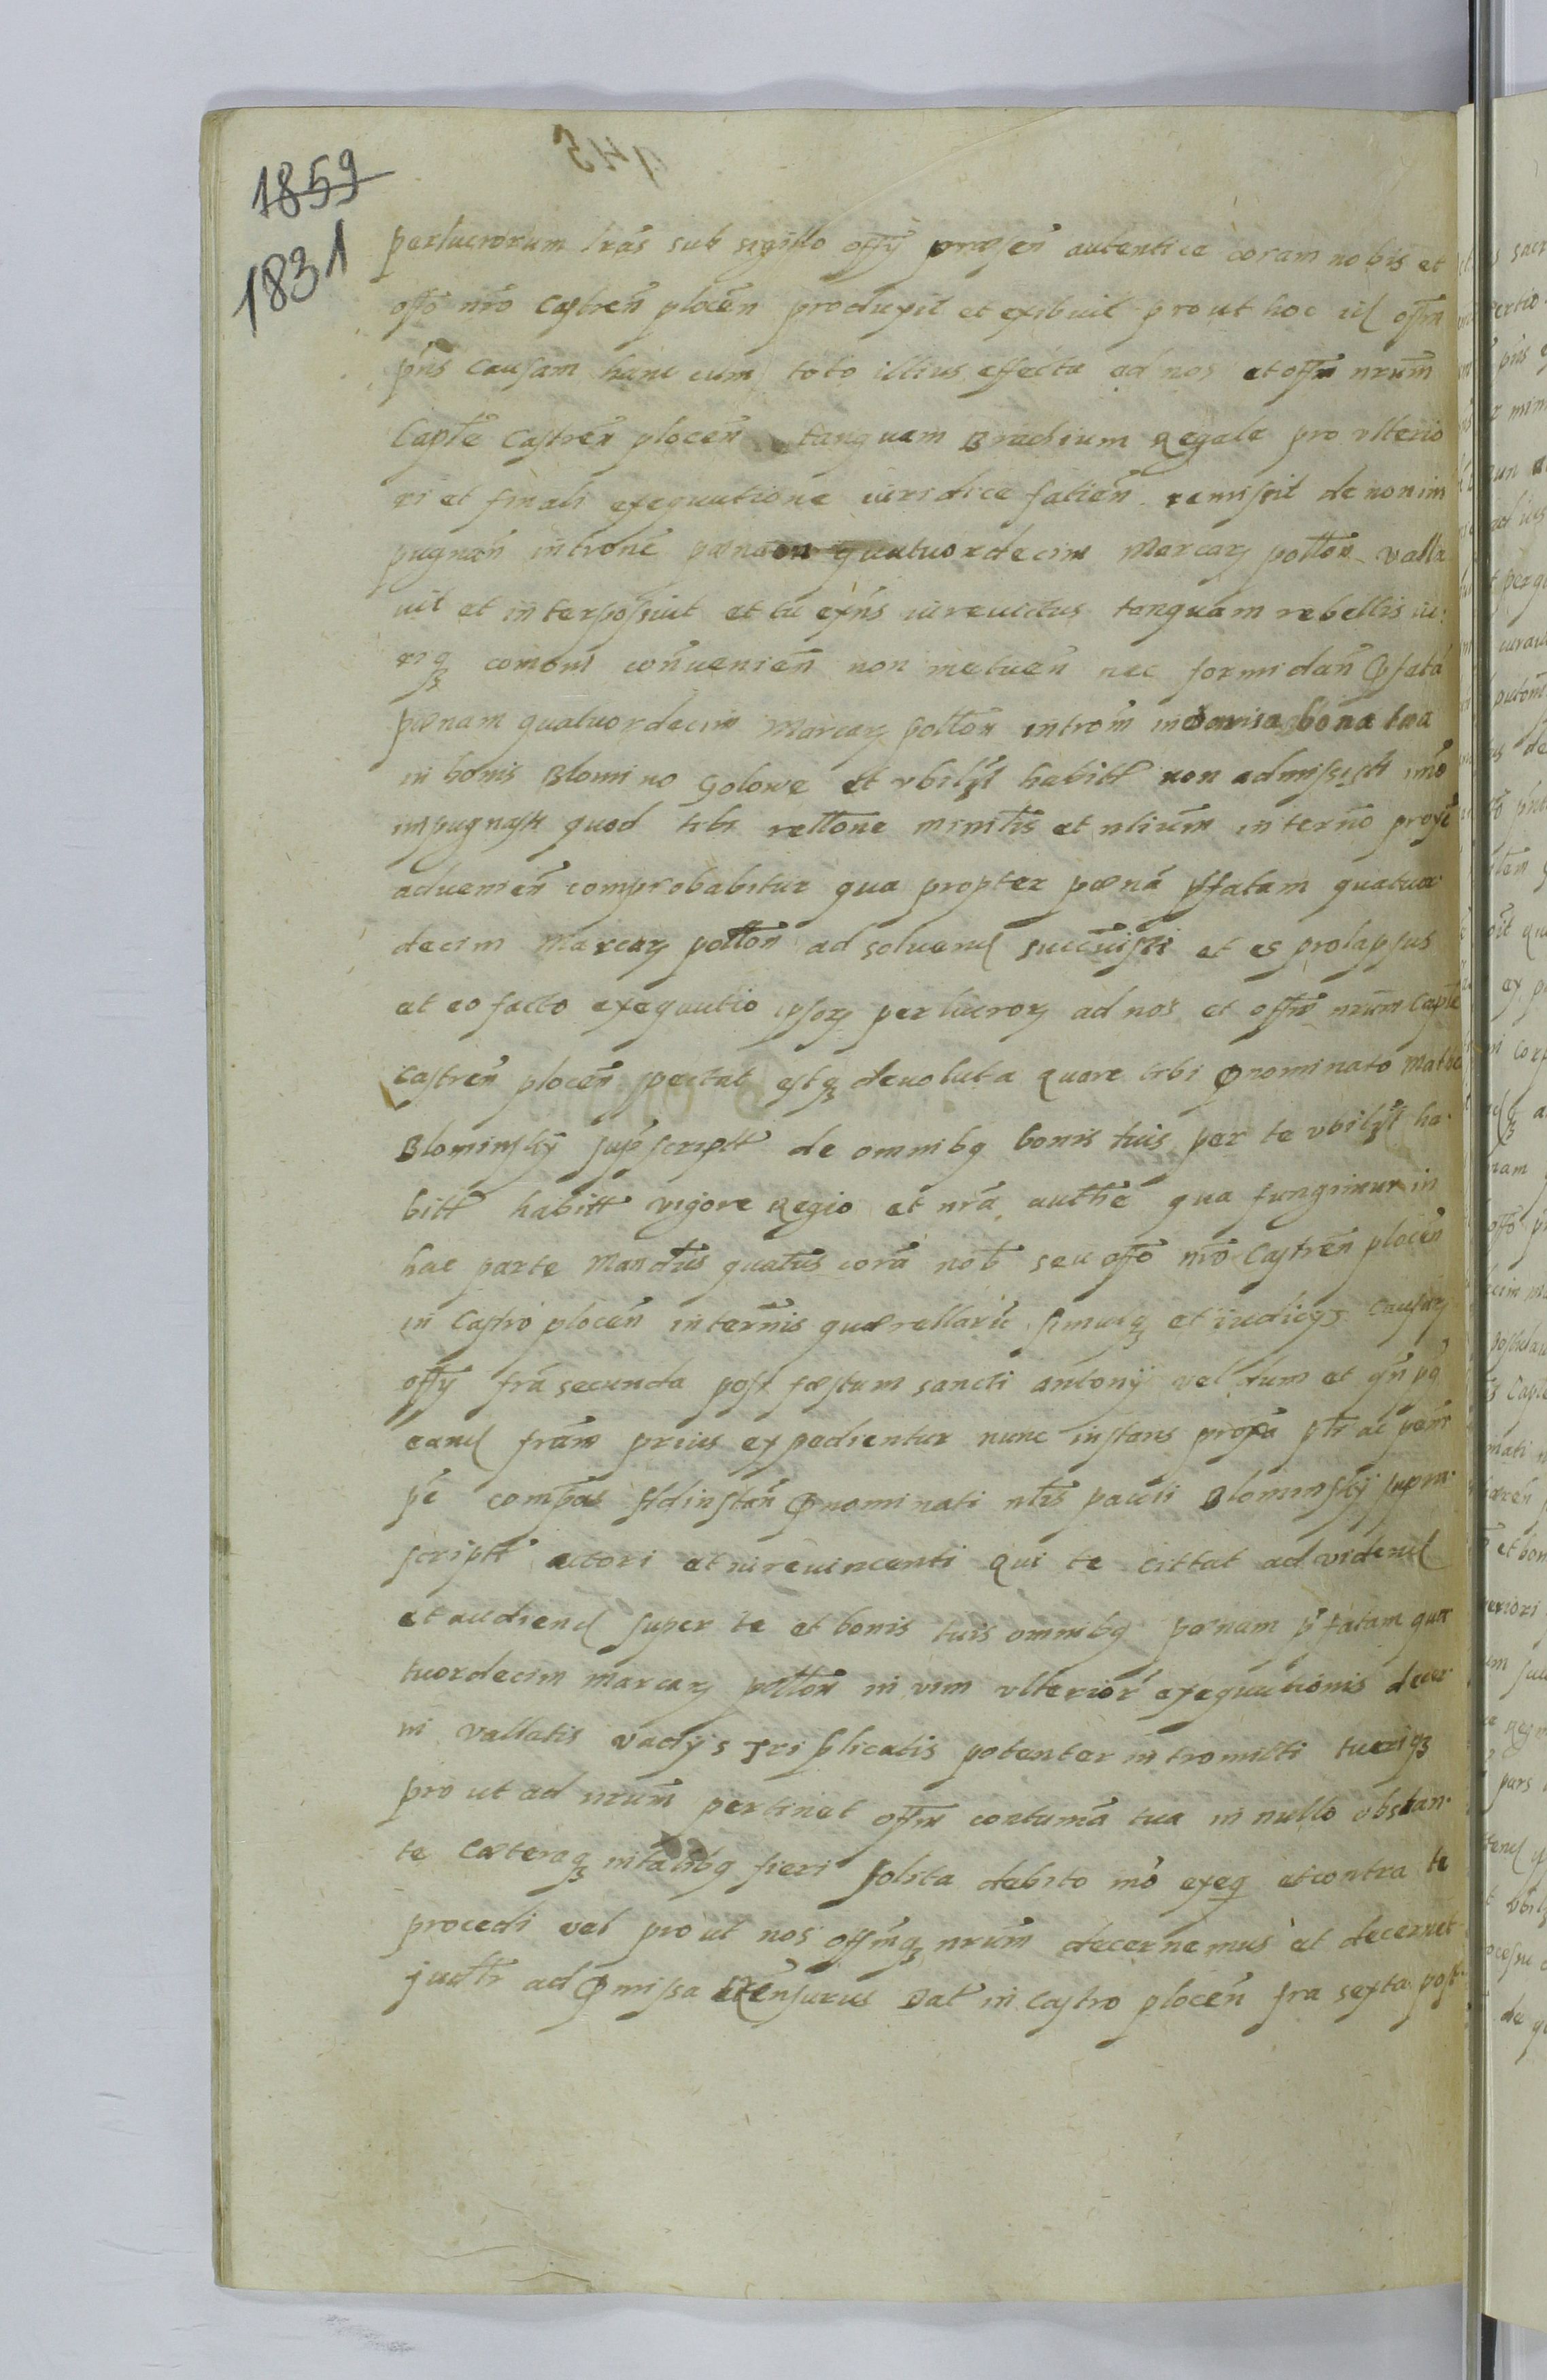 1859
1831
perlucrorum lras sub sigillo offý præsen autentice coram nobis et
offo nro Castren plocen produxit et exibuit prout hoc id offm
pns causam hanc cum toto illius effectu ad nos et offm nrum
Captle Castren plocen tanquam Brachium Regale pro vlterio
ri et finali exequutione iuridice facien remisit de non im
pugnan introne pænam quatuordecim Marcaꝝ polton valla
uit et interposuit et tu exns iurevictus tanquam rebellis iu:
riqꝫ comoni conuenien non metuen nec formidan Pfata
pænam quatuordecim Marcaꝝ polton introm in omnia bona tua
in bonis Blomino Golowe et vbilzt habitt non admisisti imo
impugnasti quod tibi rellone ministis et nlium in terno proxe
aduenien comprobabitur qua propter pæna pfatam quatuor
decim Marcaꝝ polton ad soluend succuisti et es prolapsus
et eo facto exequutio ipsoꝝ perlucroꝝ ad nos et offm nrum Captle
castren plocen spectat estqꝫ deuoluta quare tibi Pnominato Mathe
Blominský supscriptt de omnibꝗ bonis tuis per te vbilzt ha
bitt habitt vigore Regio et nra authte qua fungimur in
hac parte Mandus quatus cora nob seu offo nro Castren plocen
in Castro plocen in ternis quærellaru simulqꝫ et iudicys causaꝝ
offý fra secunda post fæstum sancti antonij vel tum et qn pꝗ
eand fram prius expedientur nunc instans proxa ptr ac pemr
pe compas Ad instan Pnominati nlis pauli Blominskÿ supra
scriptt actori et iurevincenti qui te cittat ad vidend
et audiend super te et bonis tuis omnibꝗ pænam pfatam qua
tuordecim marcaꝝ polton in vim vlterior exequutionis decer
ni vallatis vadijs Triplicatis potenter intromitti tueriqꝫ
pro ut ad nrum pertinet offm contuma tua in nullo obstan
te Cæteraqꝫ in talibꝗ fieri solita debito mo exeq et contra te
procedi vel pro ut nos offmqꝫ nrum decernemus et decernet
judtr ad Pmissa Rensurus Dat in castro plocen fra sexta post